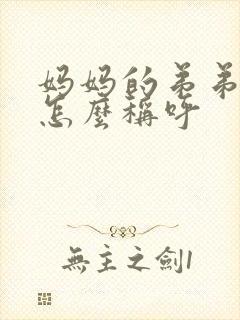 妈妈的弟弟
怎麼稱呼
無主之劍1